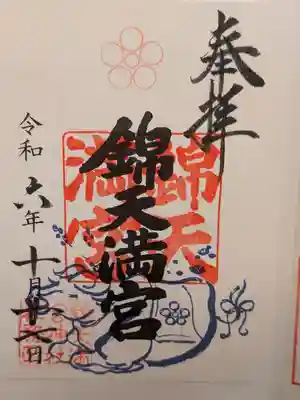 奉拝
錦天
満宮
錦天満宮
令和六年十月
日